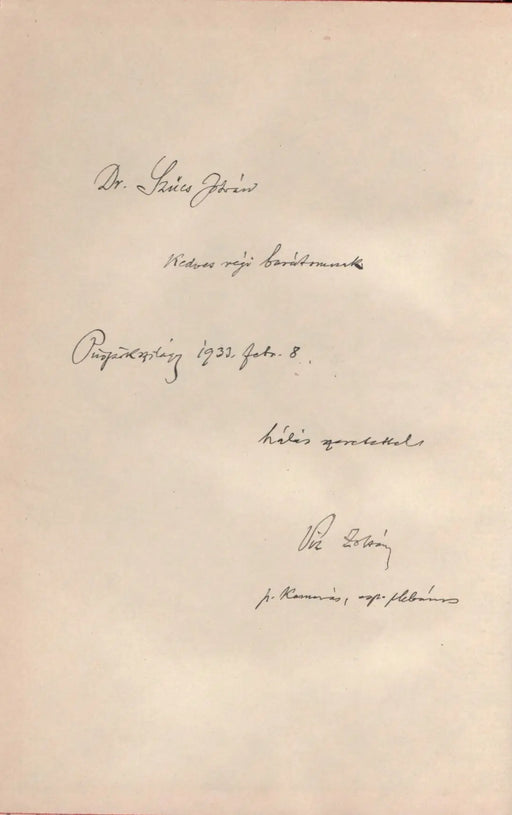 Dr. Szücs István
Kedves régi barátomnak
Püspökszilágy 1933. febr. 8.
hálás szeretettel
Víz Zoltán
p. kamarás, esp. plébános